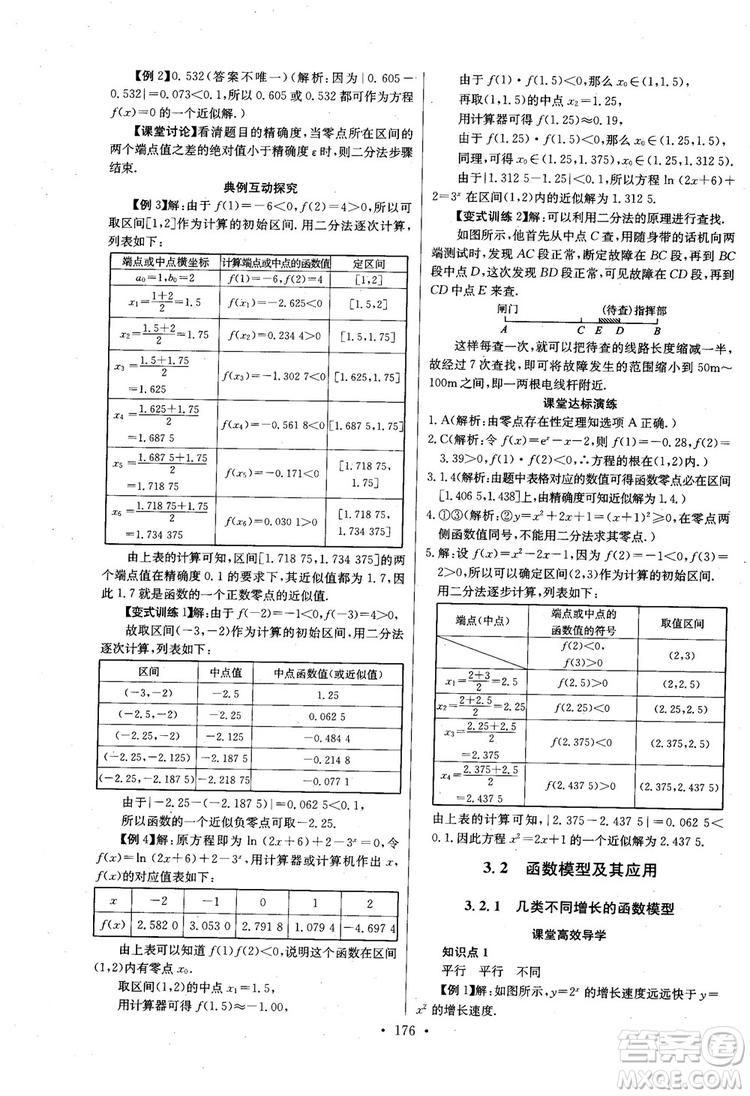 【例 2】0.532(答案不唯一)(解析:因为|0.605-
0.532|=0.073<0.1,所以 0.605 或 0.532 可作为方程
f(x)=0 的一个近似解.)
【课堂讨论】看清题目的精确度,当零点所在区间的
两个端点值之差的绝对值小于精确度 ε 时,则二分法步骤
结束.
典例互动探究
【例 3】解:由于 f(1)=-6<0,f(2)=4>0,所以可
取区间[1,2]作为计算的初始区间.用二分法逐次计算,
列表如下:
端点或中点横坐标 计算端点或中点的函数值 定区间
a₀=1,b₀=2 f(1)=-6,f(2)=4 [1,2]
x₁=1+2/2=1.5 f(x₁)=-2.625<0 [1.5,2]
x₂=1.5+2/2=1.75 f(x₂)=0.234 4>0 [1.5,1.75]
x₃=1.5+1.75/2
=1.625 f(x₃)=-1.302 7<0 [1.625,1.75]
x₄=1.625+1.75/2
=1.687 5 f(x₄)=-0.561 8<0 [1.687 5,1.75]
x₅=1.687 5+1.75/2
=1.718 75 f(x₅)=-0.171<0 [1.718 75,
1.75]
x₆=1.718 75+1.75/2
=1.734 375 f(x₆)=0.030 1>0 [1.718 75,
1.734 375]
由上表的计算可知,区间[1.718 75,1.734 375]的两
个端点值在精确度 0.1 的要求下,其近似值可为 1.7,因
此,1.7 就是函数的一个正数零点的近似值.
【变式训练 1】解:由于 f(-2)=-1<0,f(-3)=4>0,
故取区间(-3,-2)作为计算的初始区间,用二分法
逐次计算,列表如下:
区间 中点值 中点函数值(或近似值)
(-3,-2) -2.5 1.25
(-2.5,-2) -2.25 0.062 5
(-2.25,-2) -2.125 -0.484 4
(-2.25,-2.125) -2.187 5 -0.214 8
(-2.25,-2.187 5) -2.218 75 -0.077 1
由于|-2.25-(-2.187 5)|=0.062 5<0.1,
所以函数的一个近似负零点可取-2.25.
【例 4】解:原方程即为 ln (2x+6)+2=3ˣ,令
f(x)=ln (2x+6)+2-3ˣ,用计算器或计算机作出 x,
f(x)的对应值表如下:
x -2 -1 0 1 2
f(x) 2.582 0 3.053 0 2.791 8 1.079 4 -4.697 4
由上表可以知道 f(1)f(2)<0,说明这个函数在区间
(1,2)内有零点 x₀.
取区间(1,2)的中点 x₁=1.5,
用计算器可得 f(1.5)≈-1.00,
由于 f(1)·f(1.5)<0,那么 x₀∈(1,1.5),
再取(1,1.5)的中点 x₂=1.25,
用计算器可得 f(1.25)≈0.19,
由于 f(1.25)·f(1.5)<0,那么 x₀∈(1.25,1.5).
同理,可得 x₀∈(1.25,1.375),x₀∈(1.25,1.312 5)
由于|1.312 5-1.25|<0.1,所以原方程 ln(2x+6)+
2=3ˣ 在区间(1,2)内的近似解为 1.312 5.
【变式训练 2】解:可以利用二分法的原理进行查找.
如图所示,他首先从中点 C 查,用随身带的话机向两
端测试时,发现 AC 段正常,断定故障在 BC 段,再到 BC
段中点 D,这次发现 BD 段正常,可见故障在 CD 段,再到
CD 段中点 E 来查.
闸门 (待查)指挥部
A C E D B
这样每查一次,就可以把待查的线路长度缩减一半,
故经过 7 次查找,即可将故障发生的范围缩小到 50m~
100m 之间,即一两根电线杆附近.
课堂达标演练
1. A(解析:由零点存在性定理知选项 A 正确.)
2. C(解析:令 f(x)=eˣ-x-2,f(1)=-0.28,f(2)=
3.39>0,f(1)f(2)<0,∴方程的根在(1,2)内.)
3. 1.4(解析:由题中表格对应的数值可得函数零点必在区间
[1.406 5,1.438]上,由题意可知近似解为 1.4.)
4. ①③(解析:②y=x²+2x+1=(x+1)²≥0,零点两
侧函数值同号,不能用二分法求零点.)
5. 解:设 f(x)=x²-2x-1.∵f(2)=-1<0,f(3)=
2>0,所以函数在(2,3)内有零点.
用二分法逐步计算,列表如下:
端点(中点) 端点或中点的
函数值的符号 取值区间
f(2)<0,
f(3)>0 (2,3)
x₁=2+3/2=2.5 f(2.5)>0 (2,2.5)
x₂=2+2.5/2=2.25 f(2.25)<0 (2.25,2.5)
x₃=2.25+2.5/2
=2.375 f(2.375)<0 (2.375,2.5)
x₄=2.375+2.5/2
=2.437 5 f(2.437 5)>0 (2.375,2.437 5)
由上表的计算可知,|2.375-2.437 5|=0.062 5<
0.1.因此方程 x²=2x+1 的一个近似解为 2.437 5.
3.2 函数模型及其应用
3.2.1 几类不同增长的函数模型
课堂高效导学
知识点 1
平行 平行 不同
【例 1】解:如图所示,y=2ˣ 的增长速度远远快于 y=
x² 的增长速度.
· 176 ·
作业精灵